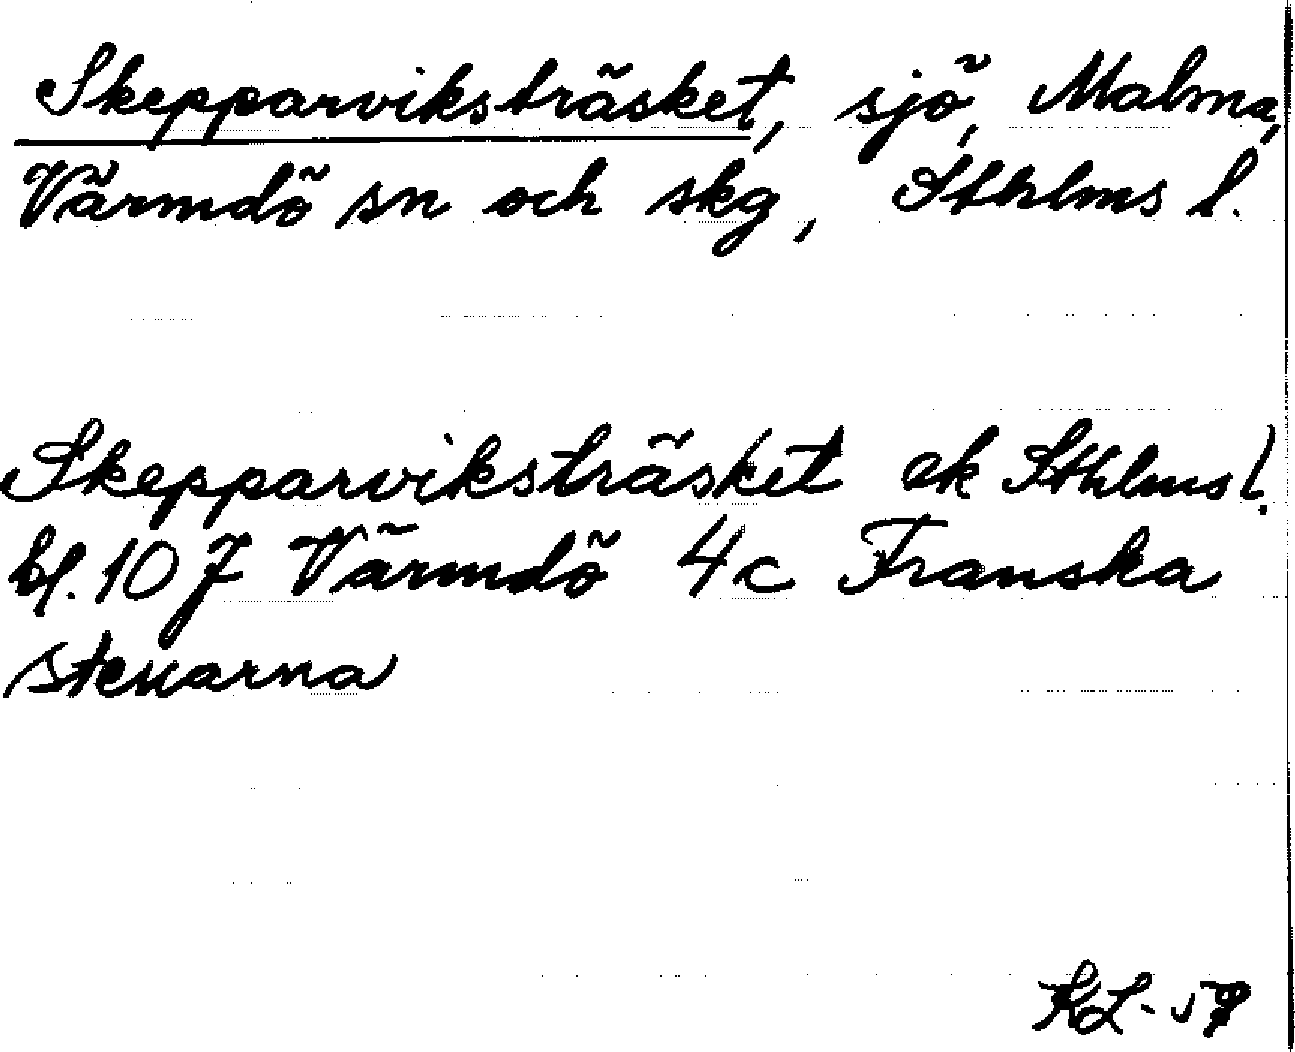 Skepparviksträsket, sjö, Malma,
Värmdö sn och skg, Sthlms l.
Skepparviksträsket ek Sthlms l.
bl. 107 Värmdö 4c Franska
stenarna
KL-59